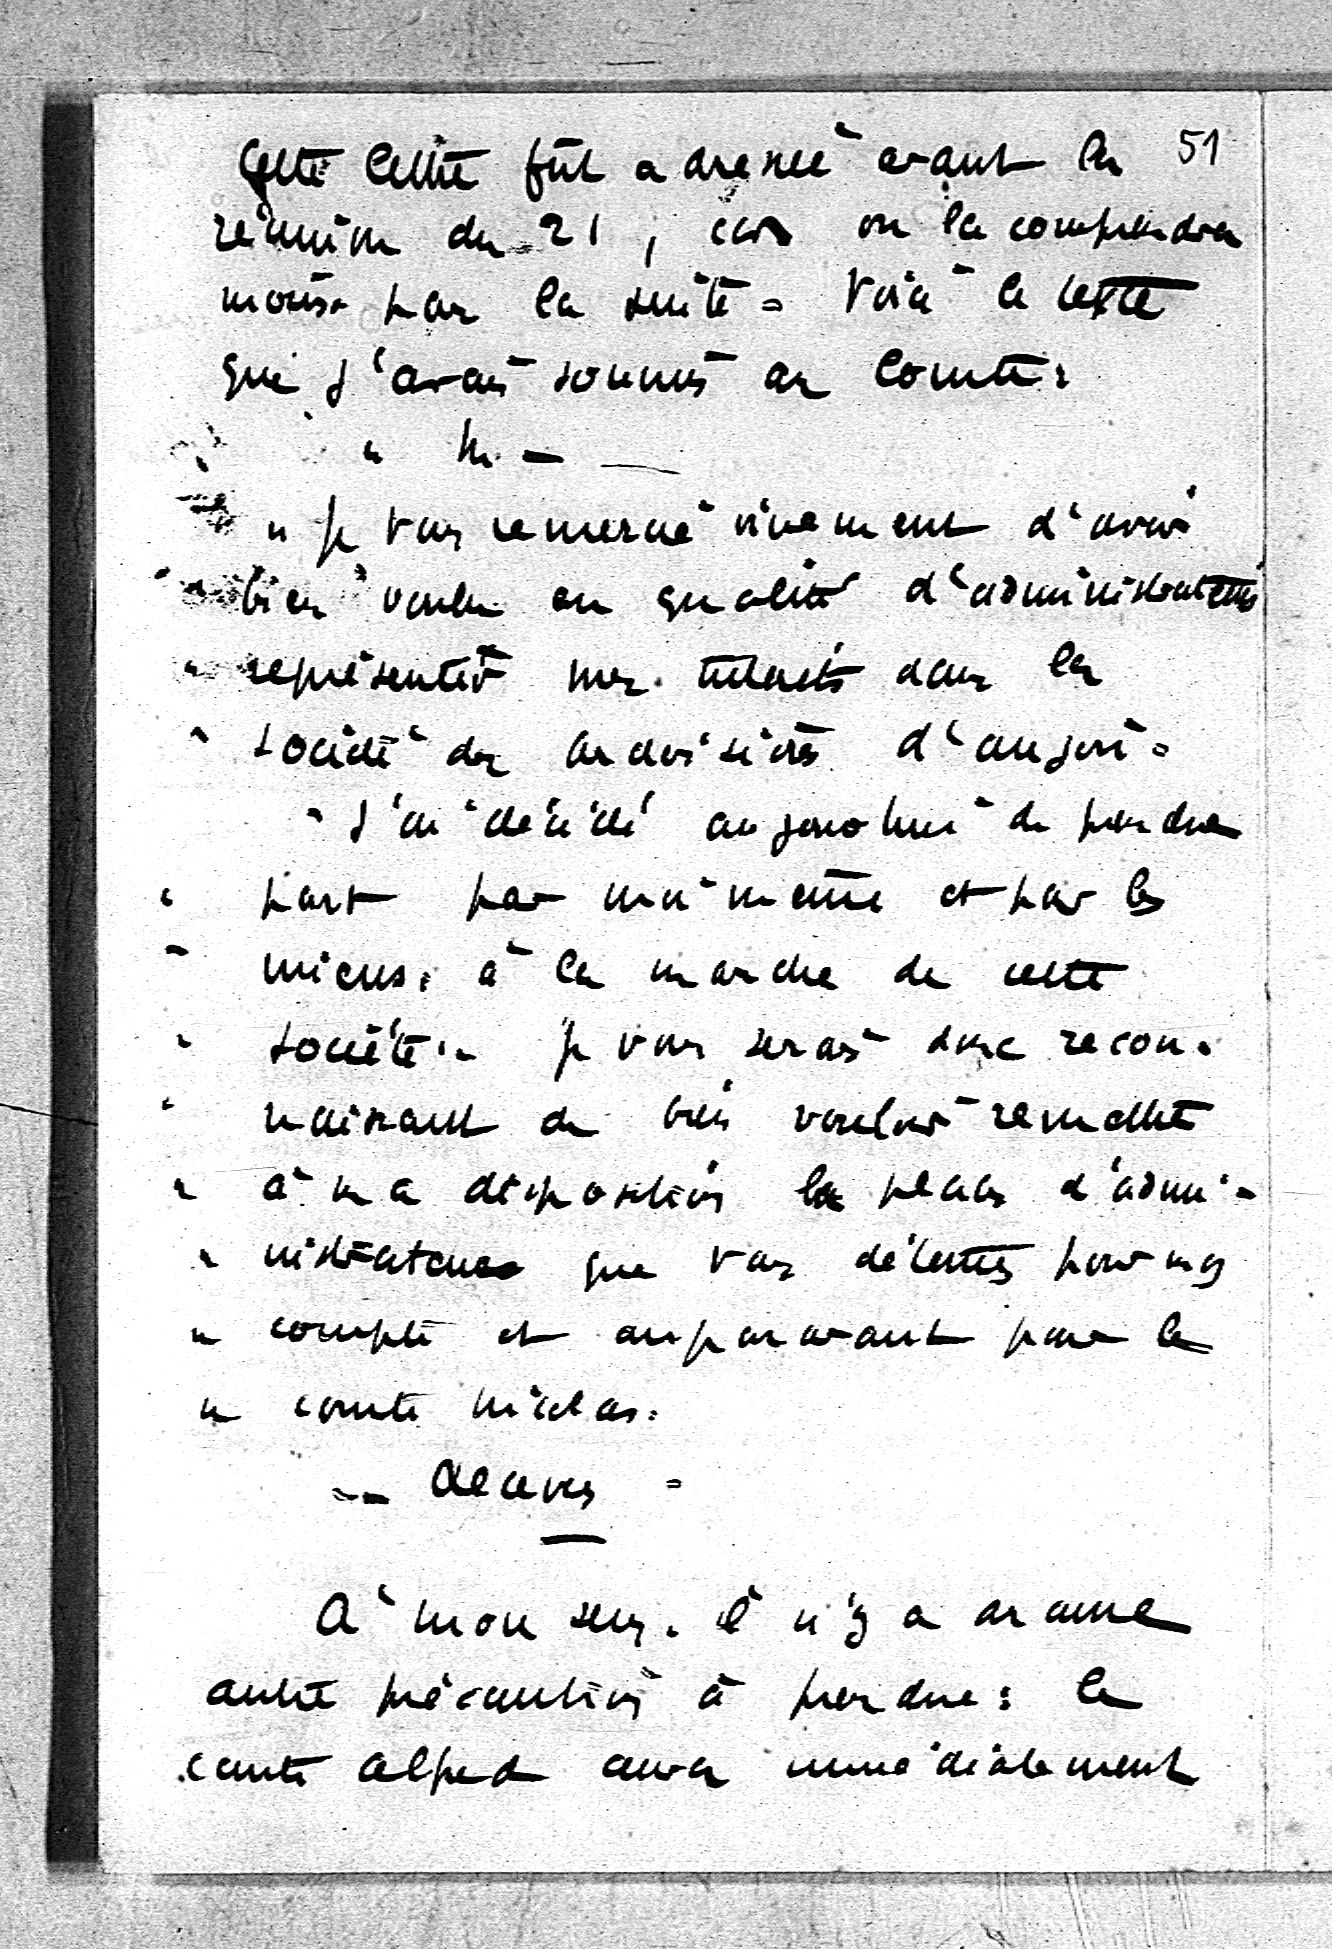 51
Cette lettre fût adressée avant la
réunion du 21, car on la comprendra
moins par la suite. Voici le texte
que j'avais soumis au Comte :
" M. —
" Je vous remercie vivement d'avoir
" bien voulu en qualité d'administrateur
" représenter mes intérêts dans la
" société des ardoisières d'angers.
" J'ai décidé aujourd'hui de prendre
" part par moi même et par les
" miens, à la marche de cette
" société. Je vous serais donc recon-
" naissant de bien vouloir remettre
" à ma disposition la place d'admi-
" nistrateur que vous détenez pour mon
" compte et auparavant pour le
" comte nicolas.
À mon sens, il n'y a aucune
autre précaution à prendre : le
comte alfred aura immédiatement